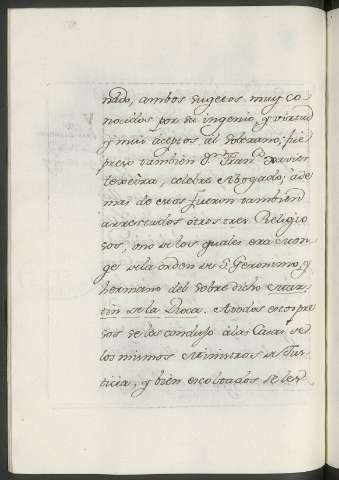 nado, ambos sugetos muy co-
nocidos por su ingenio, y virtud
y mui aceptos al soberano; fue
preso tambien Dn. Franco. Xavier
texeira, celebre Abogado; ade
mas de esos fueron tambien
arrestados otros tres Religio
sos, uno de los quales era mon-
ge de la orden de S. Geronimo, y
hermano del sobre dicho Mar-
tin de la Roca. A todos estos pre
sos se les condujo á las Casas de
los mismos Ministros de Jus-
ticia, y bien escoltados se les